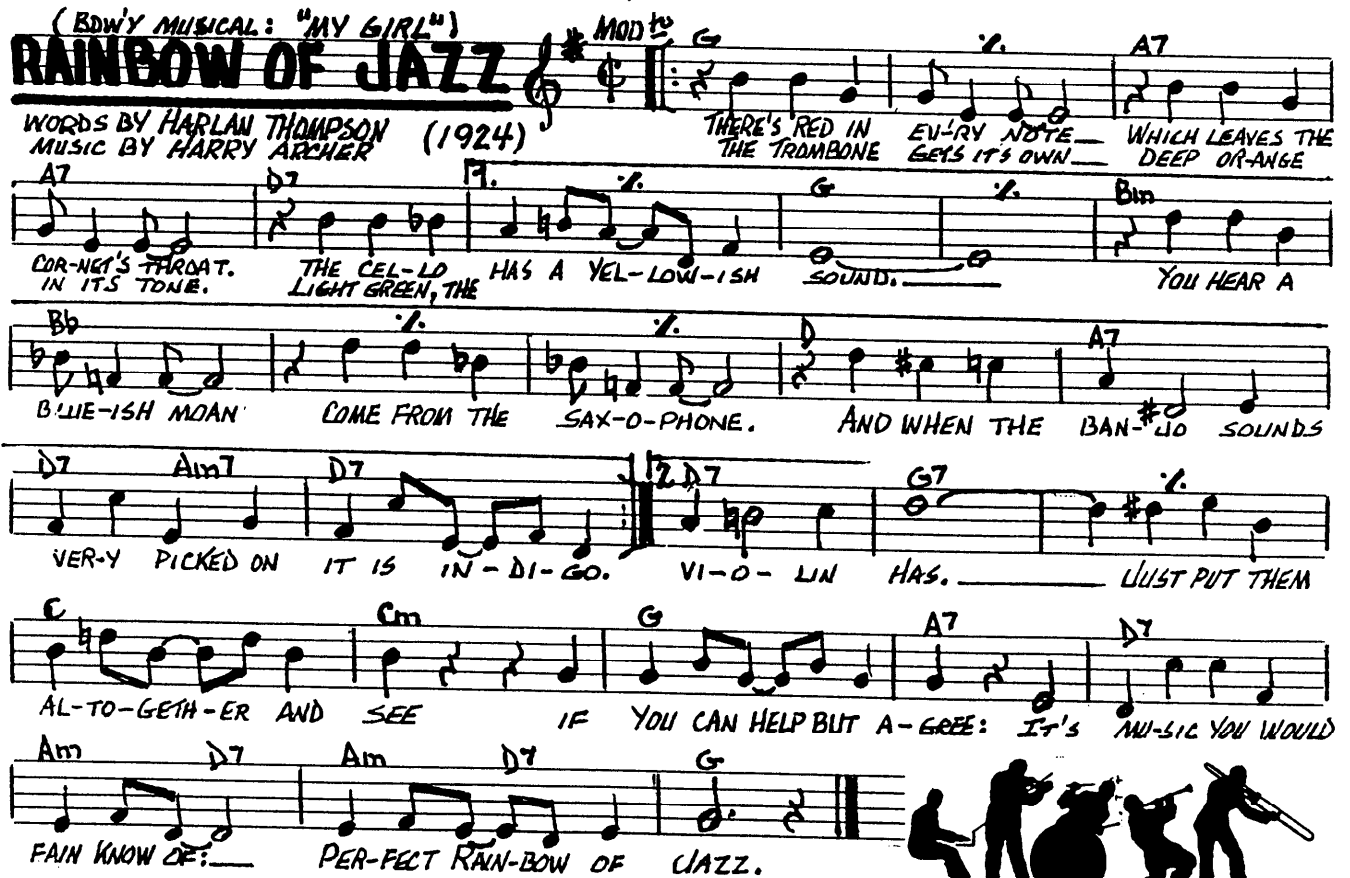 (BDW'Y MUSICAL: "MY GIRL")
RAINBOW OF JAZZ
WORDS BY HARLAN THOMPSON (1924)
MUSIC BY HARRY ARCHER
MOD to G A7
THERE'S RED IN EV-'RY NOTE WHICH LEAVES THE
THE TROMBONE GETS ITS OWN DEEP OR-ANGE
A7 D7 1. G Bm
COR-NET'S THROAT. THE CEL-LO HAS A YEL-LOW-ISH SOUND. YOU HEAR A
IN ITS TONE. LIGHT GREEN, THE
Bb D A7
BLUE-ISH MOAN COME FROM THE SAX-O-PHONE. AND WHEN THE BAN-JO SOUNDS
D7 Am7 D7 2. D7 G7
VER-Y PICKED ON IT IS IN-DI-GO. VI-O-LIN HAS. JUST PUT THEM
C Cm G A7 D7
AL-TO-GETH-ER AND SEE IF YOU CAN HELP BUT A-GREE: IT'S MU-SIC YOU WOULD
Am D7 Am D7 G
FAIN KNOW OF: PER-FECT RAIN-BOW OF JAZZ.